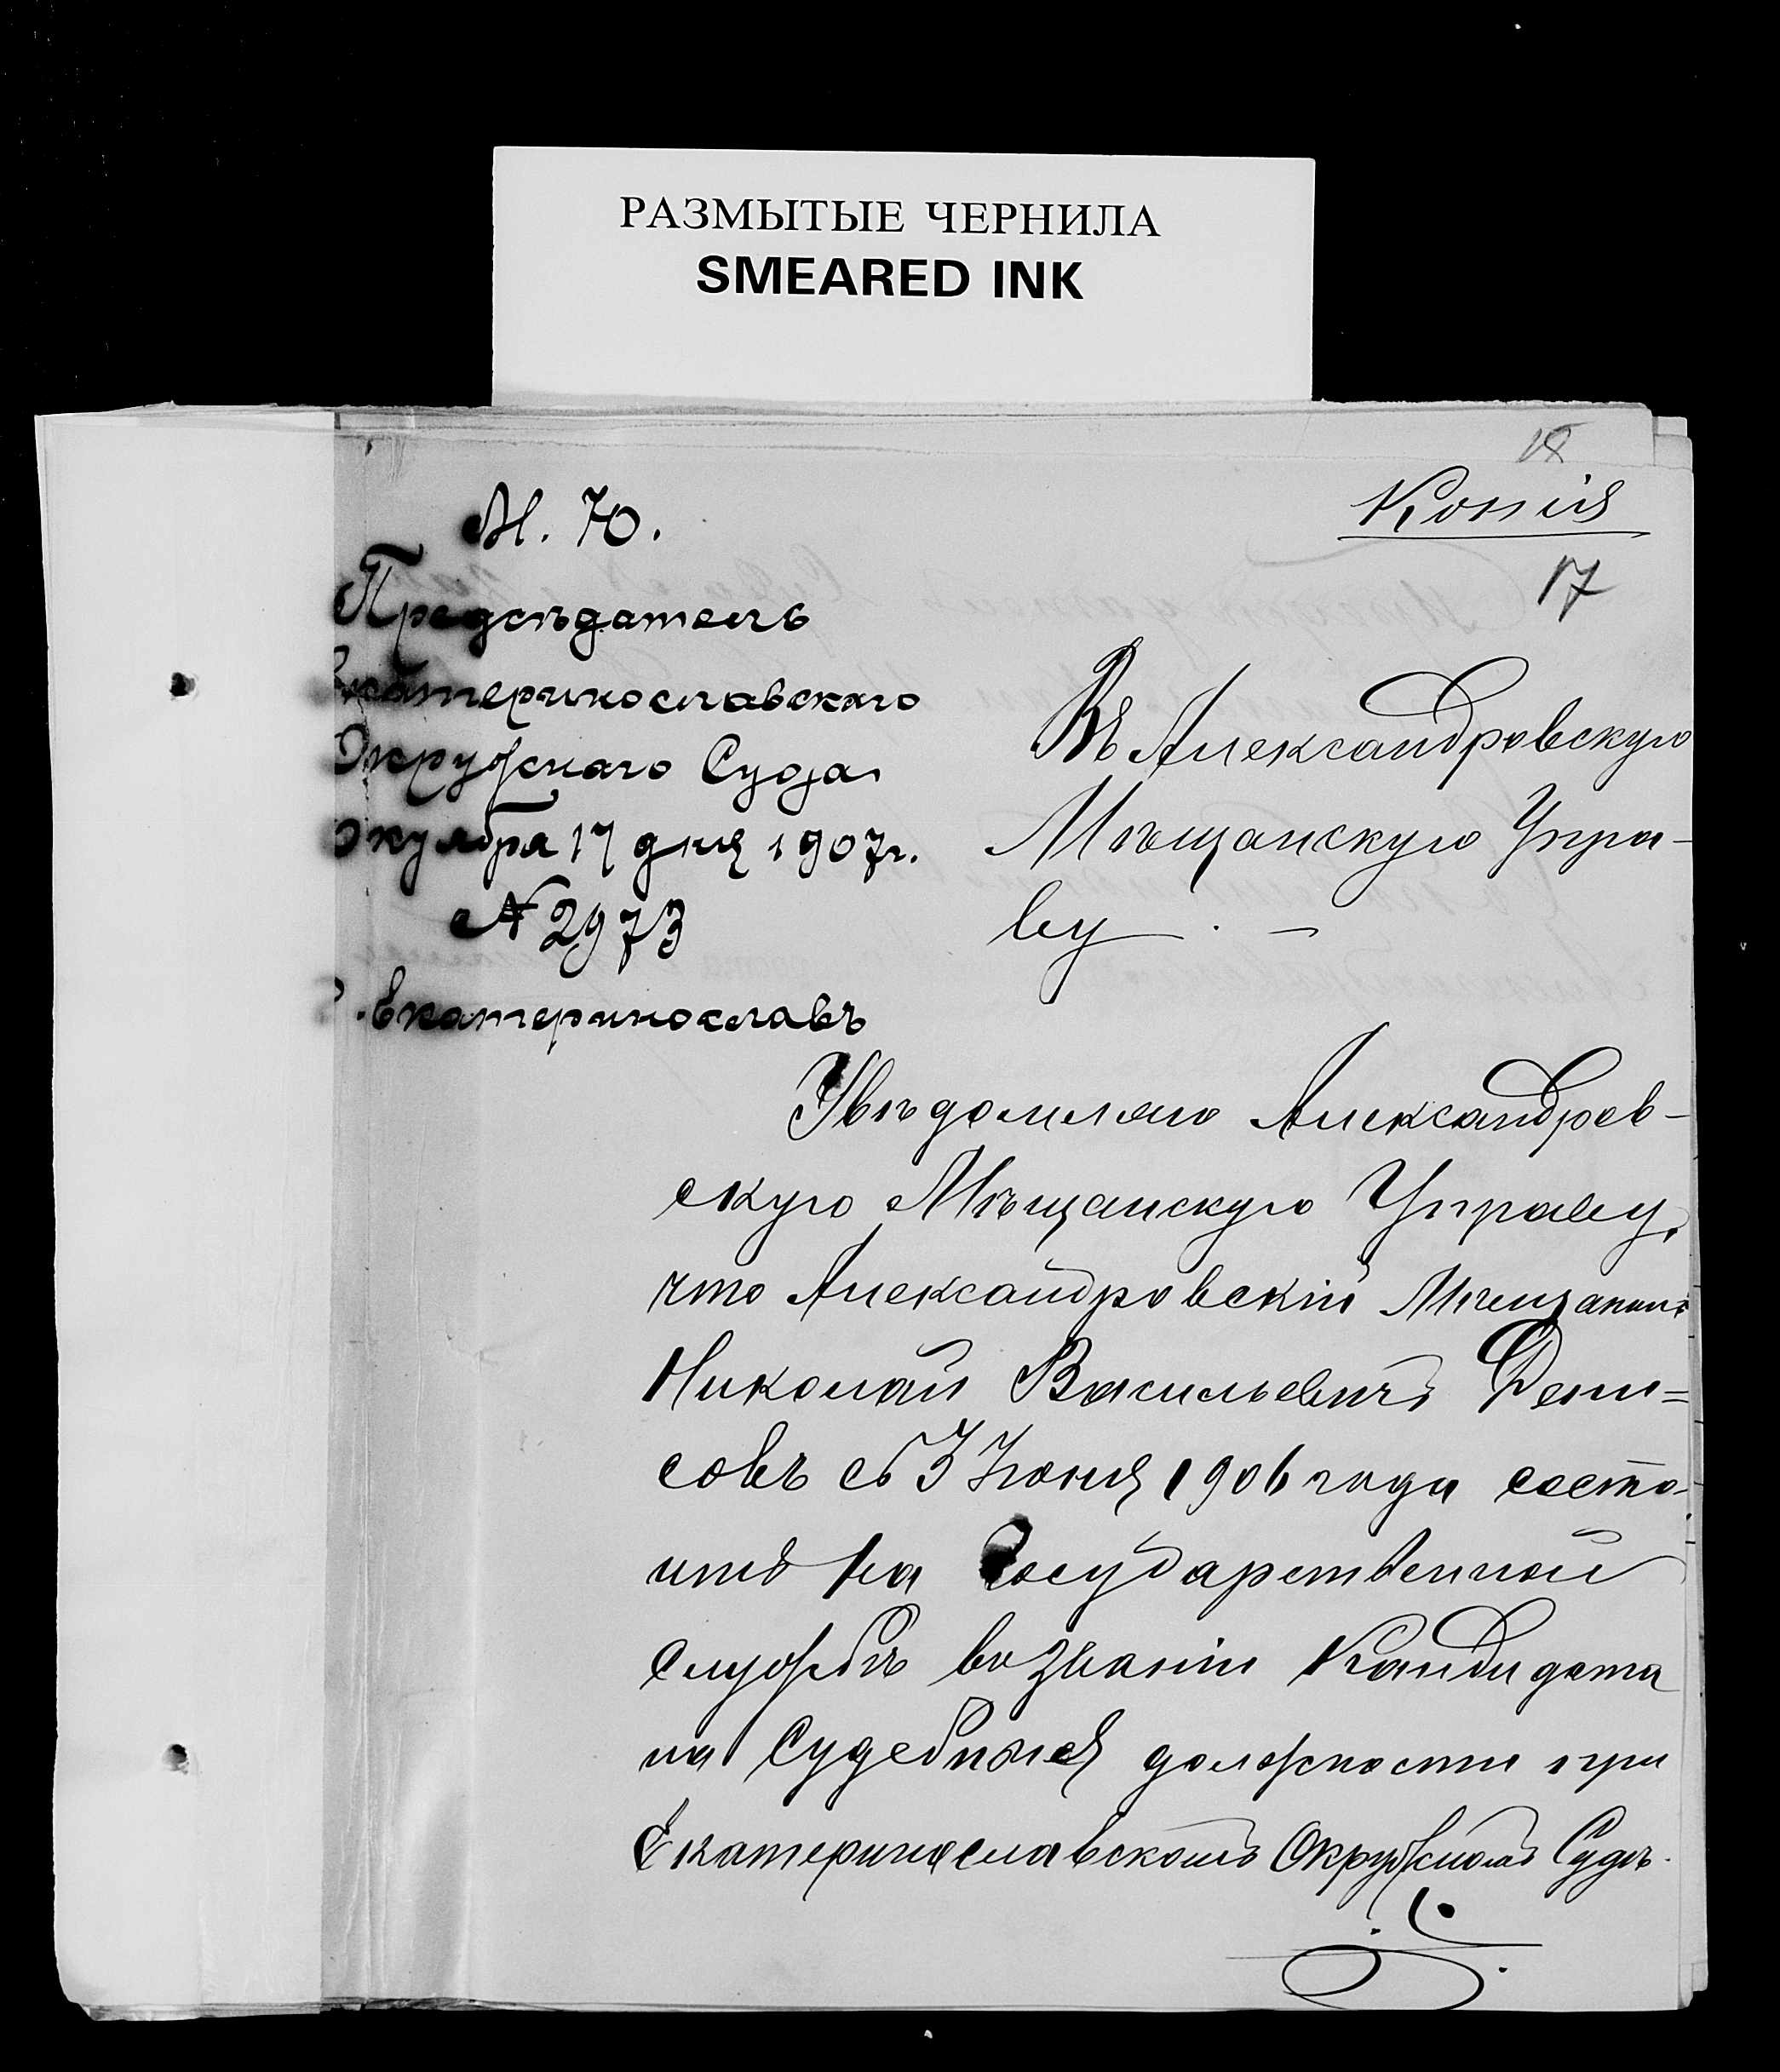 РАЗМЫТЫЕ ЧЕРНИЛА
SMEARED INK
18
Копія
17
М. Ю.
Предсѣдатель
Екатеринославскаго
Окружнаго Суда
Октября 17 дня 1907г.
№ 2973
г. Екатеринославъ
Въ Александровскую
Мѣщанскую Упра-
ву. —
Увѣдомляю Александров-
скую Мѣщанскую Управу,
что Александровскій Мѣщанинъ
Николай Васильевичъ Дени=
совъ съ 3 Іюня 1906 года состо-
итъ на Государственной
службѣ въ званіи Кандидата
на Судебныя должности при
Екатеринославскомъ Окружномъ Судѣ.